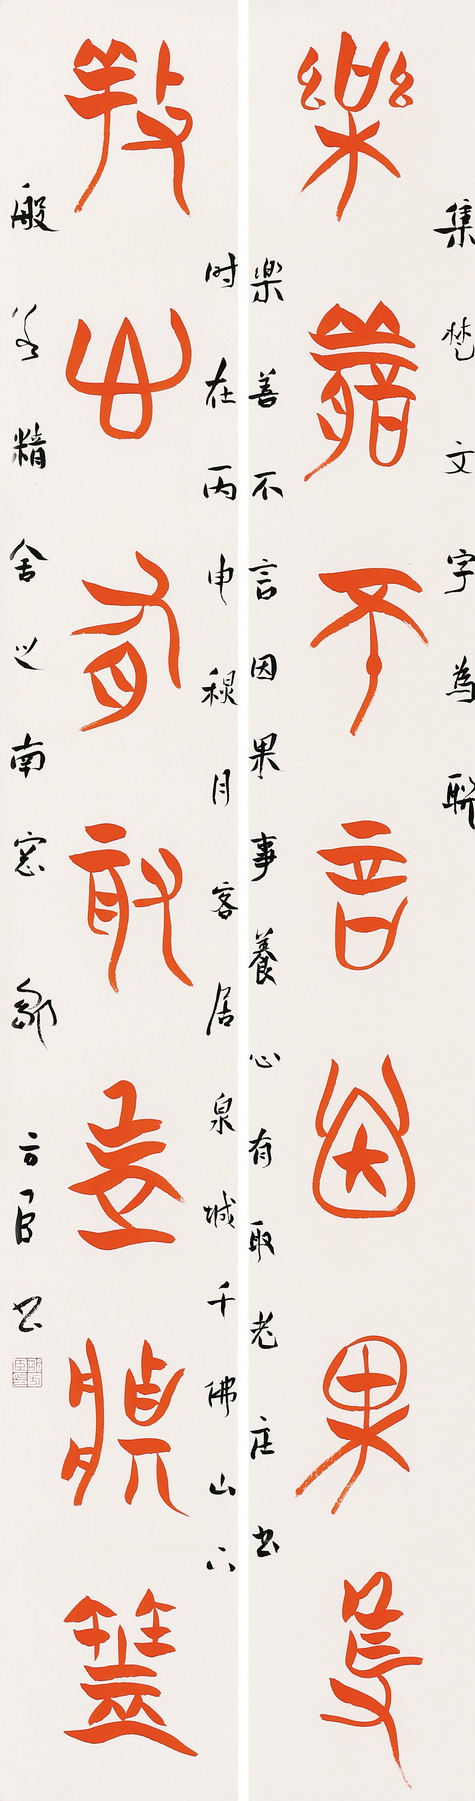 樂善不言因果事
養心有取老莊書
集楚文字為聯
樂善不言因果事養心有取老庄书
时在丙申穐月客居泉城千佛山下
般若精舍之南窓 鄒方臣书